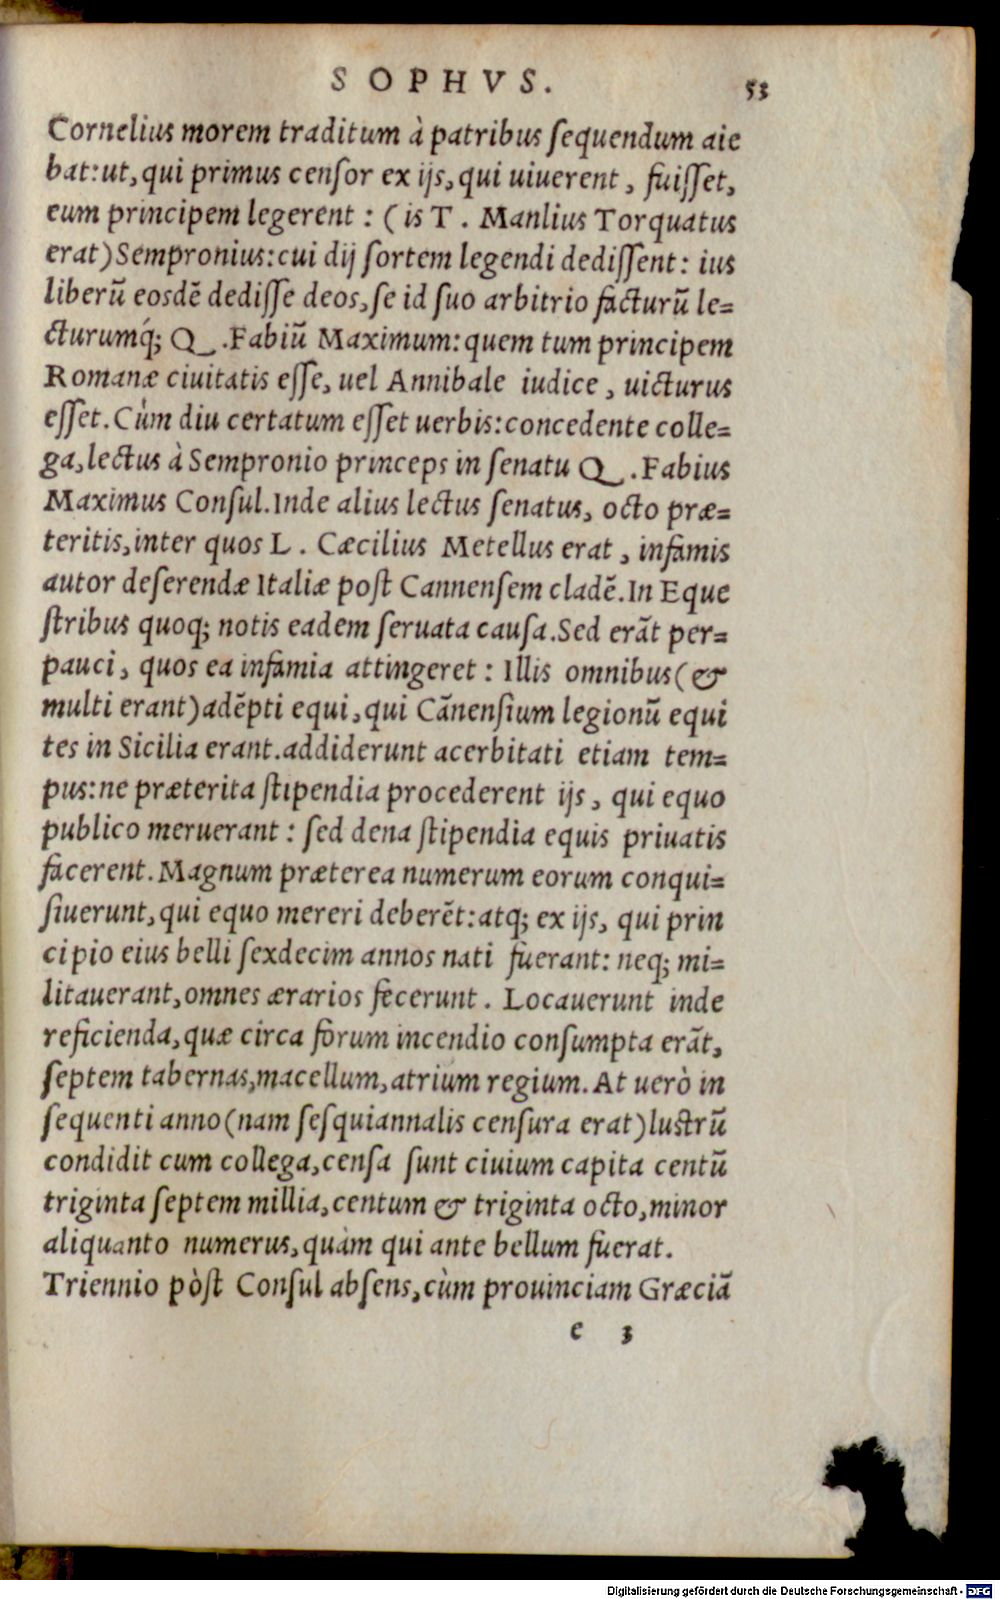 SOPHVS. 53
Cornelius morem traditum à patribus ſequendum aie
bat:ut, qui primus cenſor ex ijs, qui uiuerent, fuiſſet,
eum principem legerent: (is T. Manlius Torquatus
erat) Sempronius: cui dij ſortem legendi dediſſent: ius
liberũ eosdẽ dediſſe deos, ſe id ſuo arbitrio facturũ le=
cturumq́; Q. Fabiũ Maximum: quem tum principem
Romanæ ciuitatis eſſe, uel Annibale iudice, uicturus
eſſet. Cùm diu certatum eſſet uerbis: concedente colle=
ga, lectus à Sempronio princeps in ſenatu Q. Fabius
Maximus Conſul. Inde alius lectus ſenatus, octo præ=
teritis, inter quos L. Cæcilius Metellus erat, infamis
autor deſerendæ Italiæ poſt Cannenſem cladẽ. In Eque
ſtribus quoq; notis eadem ſeruata cauſa. Sed erãt per=
pauci, quos ea infamia attingeret: Illis omnibus (&
multi erant) adẽpti equi, qui Cãnenſium legionũ equi
tes in Sicilia erant. addiderunt acerbitati etiam tem=
pus: ne præterita ſtipendia procederent ijs, qui equo
publico meruerant: ſed dena ſtipendia equis priuatis
facerent. Magnum præterea numerum eorum conqui=
ſiuerunt, qui equo mereri deberẽt: atq; ex ijs, qui prin
cipio eius belli ſexdecim annos nati fuerant: neq; mi=
litauerant, omnes ærarios fecerunt. Locauerunt inde
reficienda, quæ circa forum incendio conſumpta erãt,
ſeptem tabernas, macellum, atrium regium. At uerò in
ſequenti anno (nam ſeſquiannalis cenſura erat) luſtrũ
condidit cum collega, cenſa ſunt ciuium capita centũ
triginta ſeptem millia, centum & triginta octo, minor
aliquanto numerus, quàm qui ante bellum fuerat.
Triennio pòſt Conſul abſens, cùm prouinciam Græciã
e 3
Digitalisierung gefördert durch die Deutsche Forschungsgemeinschaft - DFG